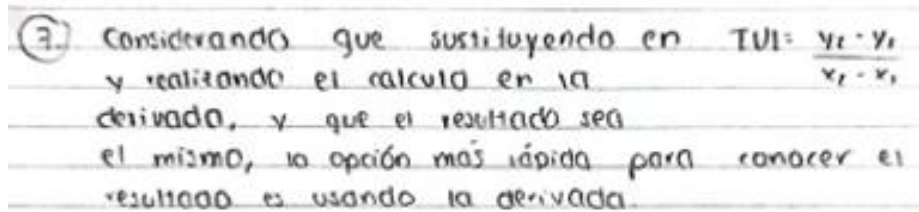 7. Considerando que sustituyendo en TVI= y₂ - y₁ / x₂ - x₁
y realizando el calculo en la
derivada, y que el resultado sea
el mismo, la opción más rápida para conocer el
resultado es usando la derivada.